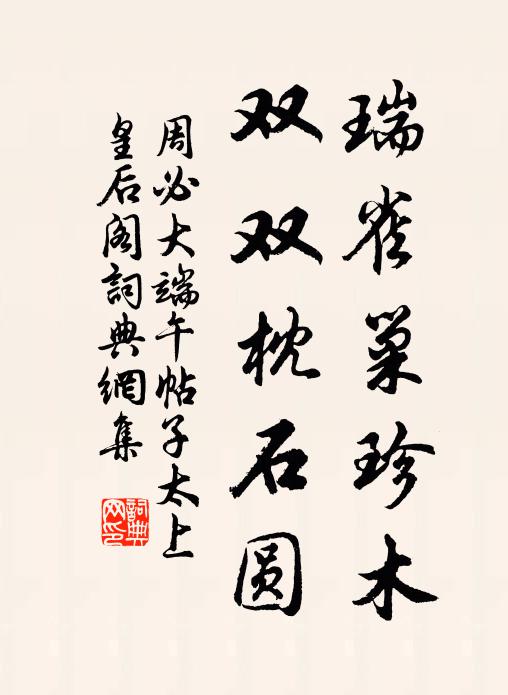 瑞雀巢珍木
双双枕石圆
周必大端午帖子太上
皇后阁詞典網集
詞典网印